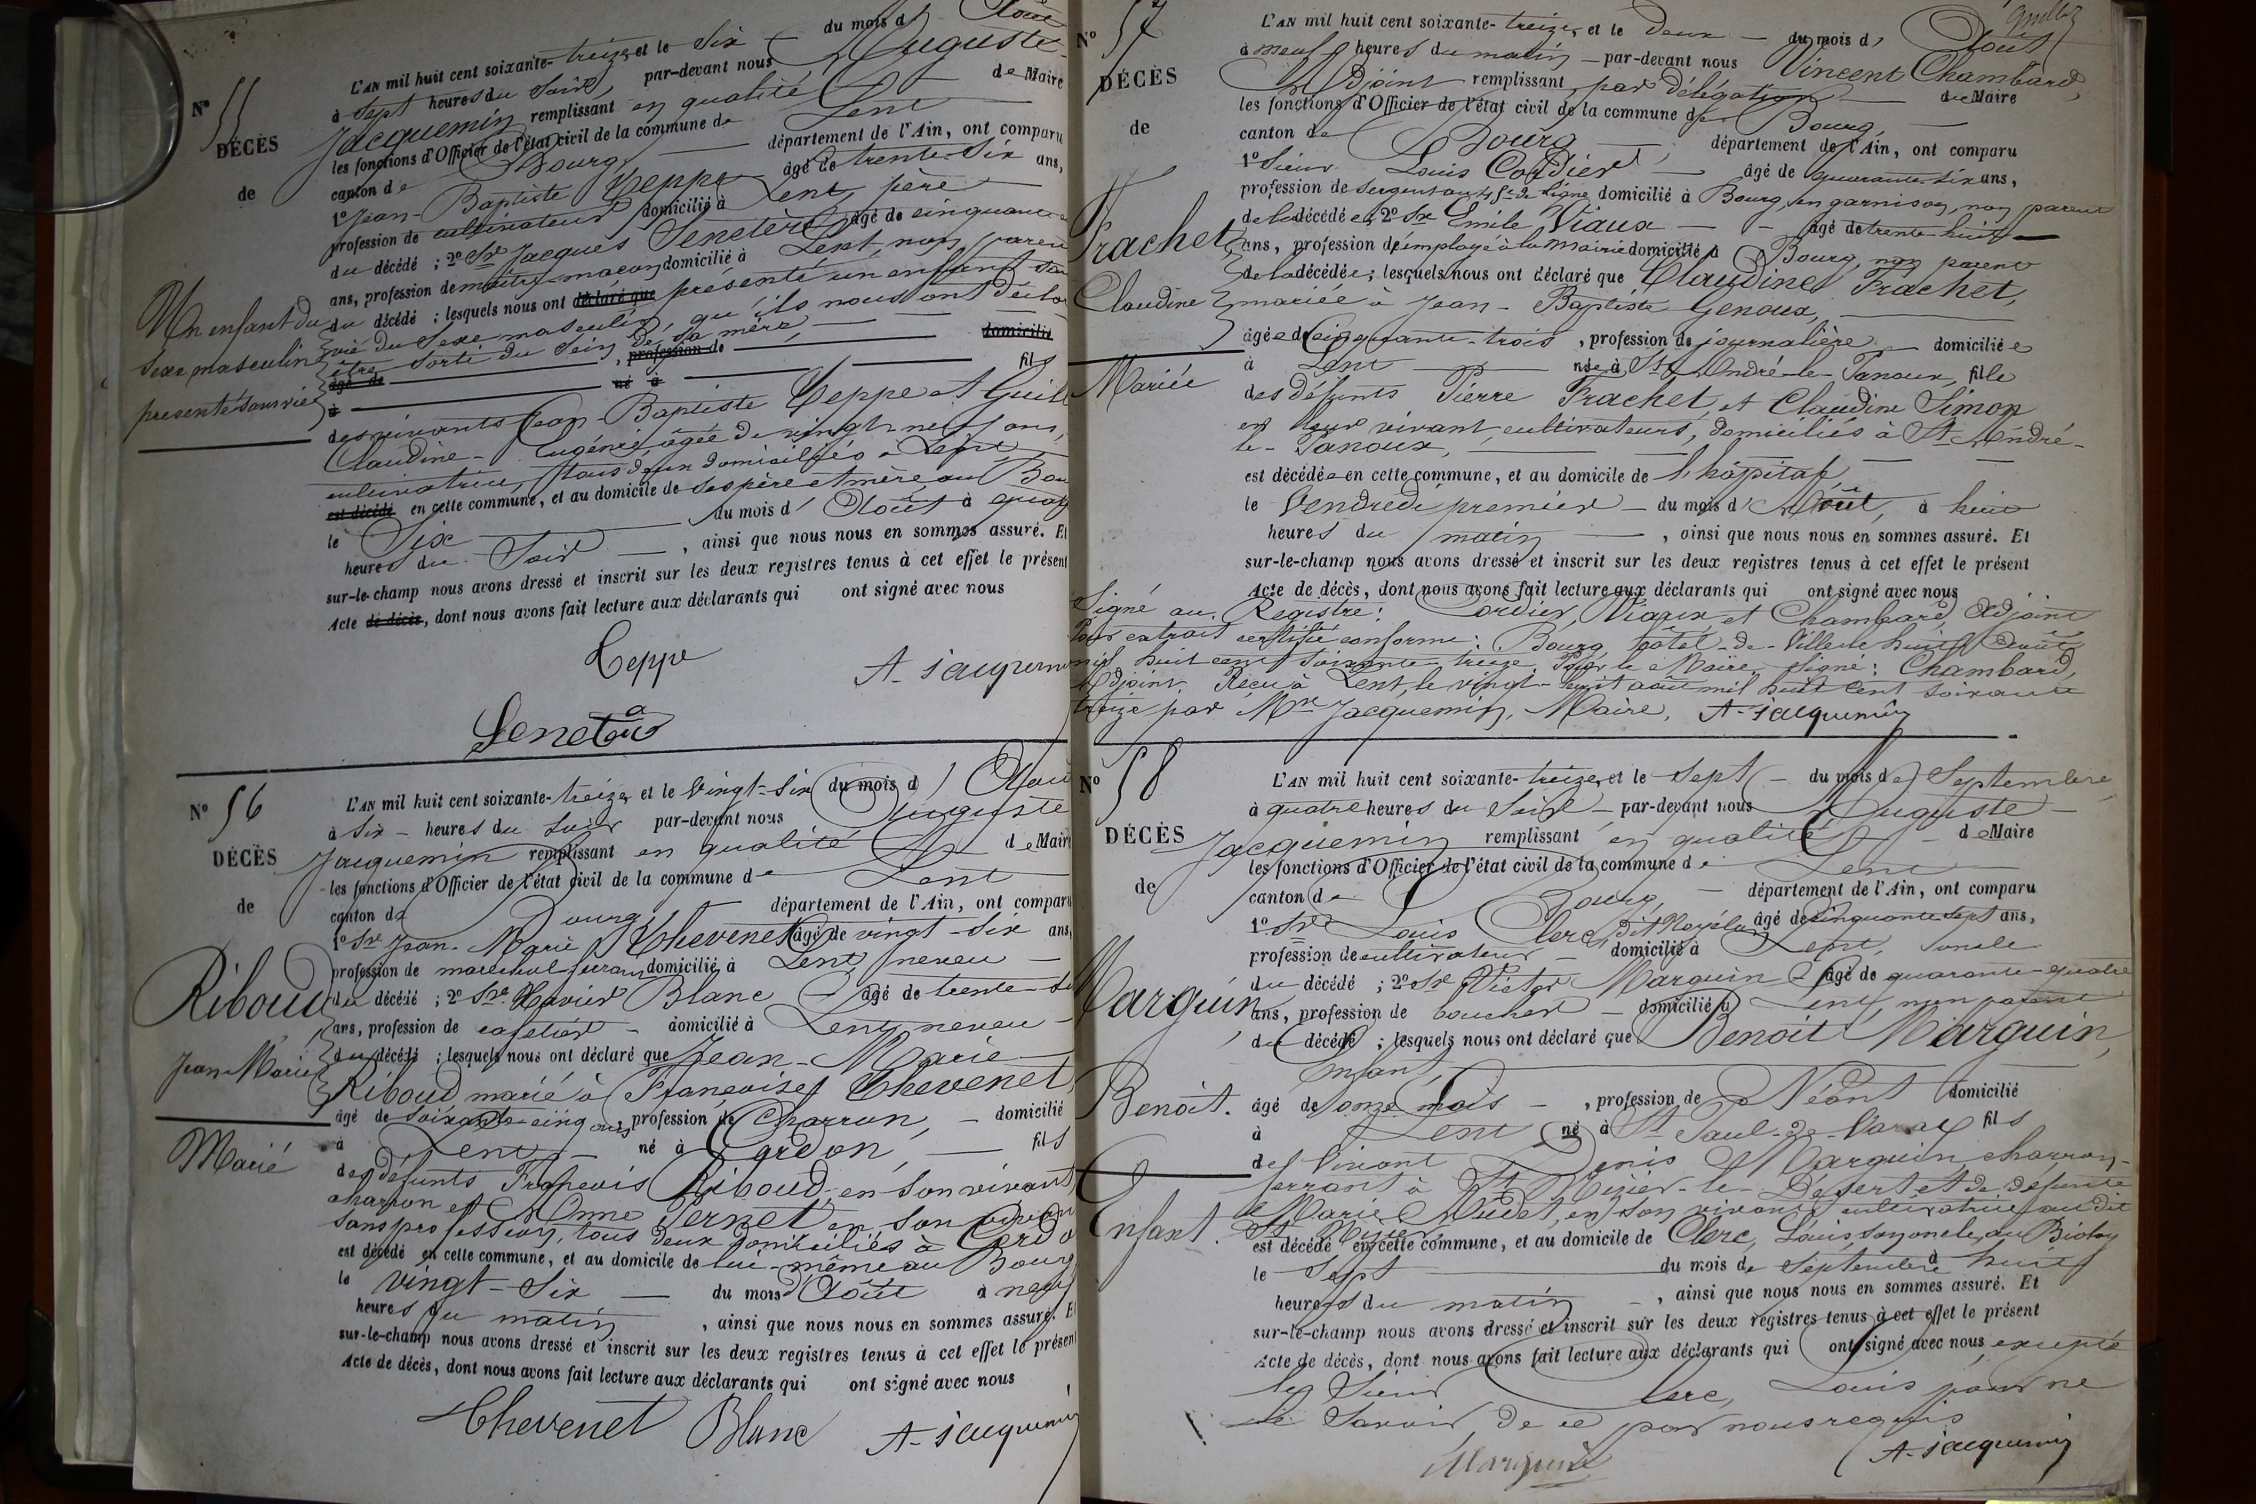 N° 55
DÉCÈS
de
Un enfant du
sexe masculin
présenté sans vie
L'AN mil huit cent soixante-treize, et le Six — du mois d' Août
à sept heures du Soir, par-devant nous Auguste
Jacquemin remplissant en qualité de Maire
les fonctions d'Officier de l'état civil de la commune de Lent
canton de Bourg — département de l'Ain, ont comparu
1° Jean-Baptiste Teppe âgé de trente-six ans,
profession de cultivateur domicilié à Lent, père
du décédé ; 2° Sr Jacques Senetère âgé de cinquante
ans, profession de maître-maçon domicilié à Lent, non parent
du décédé ; lesquels nous ont déclaré que présenté un enfant sans
vie du Sexe masculin, qu'ils nous ont déclaré
être sorti du Sein de sa mère, — domicilié
âgé de — , profession de — fils
à — né à —
des vivants Jean-Baptiste Teppe et
Claudine-Eugénie, âgée de vingt-neuf ans,
cultivatrice, tous deux domiciliés à Lent
est décédé en cette commune, et au domicile de ses père et mère au
le Six — du mois d' Août à
heures du Soir — , ainsi que nous nous en sommes assuré. Et
sur-le-champ nous avons dressé et inscrit sur les deux registres tenus à cet effet le présent
Acte de décès, dont nous avons fait lecture aux déclarants qui ont signé avec nous
Teppe
A. Jacquemin
Senetère
N° 56
DÉCÈS
de
Riboud
Jean-Marie
Marié
L'AN mil huit cent soixante-treize, et le vingt-Six du mois d' Août
à Six — heures du Soir par-devant nous Auguste
Jacquemin remplissant en qualité de Maire
les fonctions d'Officier de l'état civil de la commune de Lent
canton de Bourg département de l'Ain, ont comparu
1° Sr Jean-Marie Chevenet âgé de vingt-six ans,
profession de maréchal-ferrant domicilié à Lent, neveu —
du décédé ; 2° Sr Xavier Blanc — âgé de trente-
ans, profession de cafetier — domicilié à Lent, neveu —
du décédé ; lesquels nous ont déclaré que Jean-Marie —
Riboud marié à Françoise Chevenet
âgé de soixante-cinq ans, profession de Charron, — domicilié
à Lent — né à Cerdon, — fils
des défunts François Riboud, en son vivant
charron et Anne Pernet en son vivant
sans profession, tous deux domiciliés à Cerdon
est décédé en cette commune, et au domicile de lui-même au Bourg
le vingt-Six — du mois d'Août à neuf
heures du matin , ainsi que nous nous en sommes assuré. Et
sur-le-champ nous avons dressé et inscrit sur les deux registres tenus à cet effet le présent
Acte de décès, dont nous avons fait lecture aux déclarants qui ont signé avec nous
Chevenet Blanc A. Jacquemin
N° 57
DÉCÈS
de
Frachet
Claudine
Mariée
L'AN mil huit cent soixante-treize, et le Deux — du mois d' Août
à neuf heures du matin — par-devant nous Vincent Chambard,
Adjoint remplissant, par délégation — du Maire
les fonctions d'Officier de l'état civil de la commune de Bourg,
canton de Bourg — , département de l'Ain, ont comparu
1° Sieur Louis Cordier — âgé de quarante-six ans,
profession de Sergent au de ligne domicilié à Bourg, en garnison, non parent
de la décédée, 2° Sr Emile Viaux — âgé de trente-huit
ans, profession d'employé à la mairie domicilié à Bourg, non parent
de la décédée ; lesquels nous ont déclaré que Claudine Frachet,
mariée à Jean-Baptiste Genoux, —
âgée de Cinquante-trois , profession de journalière — domiciliée
à Lent — née à St André-le-Panoux, fille
des défunts Pierre Frachet, et Claudine Simon
en leur vivant, cultivateurs, domiciliés à St André-
le-Panoux, —
est décédée en cette commune, et au domicile de l'hôpital, —
le Vendredi premier — du mois d' Août, à huit
heures du matin — , ainsi que nous nous en sommes assuré. Et
sur-le-champ nous avons dressé et inscrit sur les deux registres tenus à cet effet le présent
Acte de décès, dont nous avons fait lecture aux déclarants qui ont signé avec nous
Signé au Registre : Cordier, Viaux et Chambard, Adjoint
Pour extrait certifié conforme : Bourg, hôtel-de-Ville le huit Août
mil huit cent soixante-treize. Pour le Maire, signé : Chambard,
Adjoint. Reçu à Lent, le vingt-huit août mil huit cent soixante
treize par Mr Jacquemin, Maire. A. Jacquemin
N° 58
DÉCÈS
de
Marguin
Benoît.
Enfant.
L'AN mil huit cent soixante-treize, et le Sept — du mois de Septembre
à quatre heures du Soir — par-devant nous Auguste —
Jacquemin remplissant en qualité — de Maire
les fonctions d'Officier de l'état civil de la commune de Lent
canton de Bourg, — département de l'Ain, ont comparu
1° Sr Louis Clerc, dit âgé de cinquante-sept ans,
profession de cultivateur — domicilié à Lent, oncle
du décédé ; 2° Sr Victor Marguin — âgé de quarante-quatre
ans, profession de boucher — domicilié à Lent, non parent
du décédé ; lesquels nous ont déclaré que Benoît Marguin,
Enfant, —
âgé de onze mois — , profession de Néant domicilié
à Lent né à St Paul-de-Varax fils
de Vivant Denis Marguin charron-
ferrant à St Nizier-le-Désert et de défunte
Marie en son vivant cultivatrice au dit
St Nizier,
est décédé en cette commune, et au domicile de Clerc, Louis son oncle, au Biolay
le Sept — du mois de Septembre à huit
heures du matin — , ainsi que nous nous en sommes assuré. Et
sur-le-champ nous avons dressé et inscrit sur les deux registres tenus à cet effet le présent
Acte de décès, dont nous avons fait lecture aux déclarants qui ont signé avec nous, excepté
le Sieur Clerc, Louis pour ne
le Savoir, de ce par nous requis
Marguin
A. Jacquemin